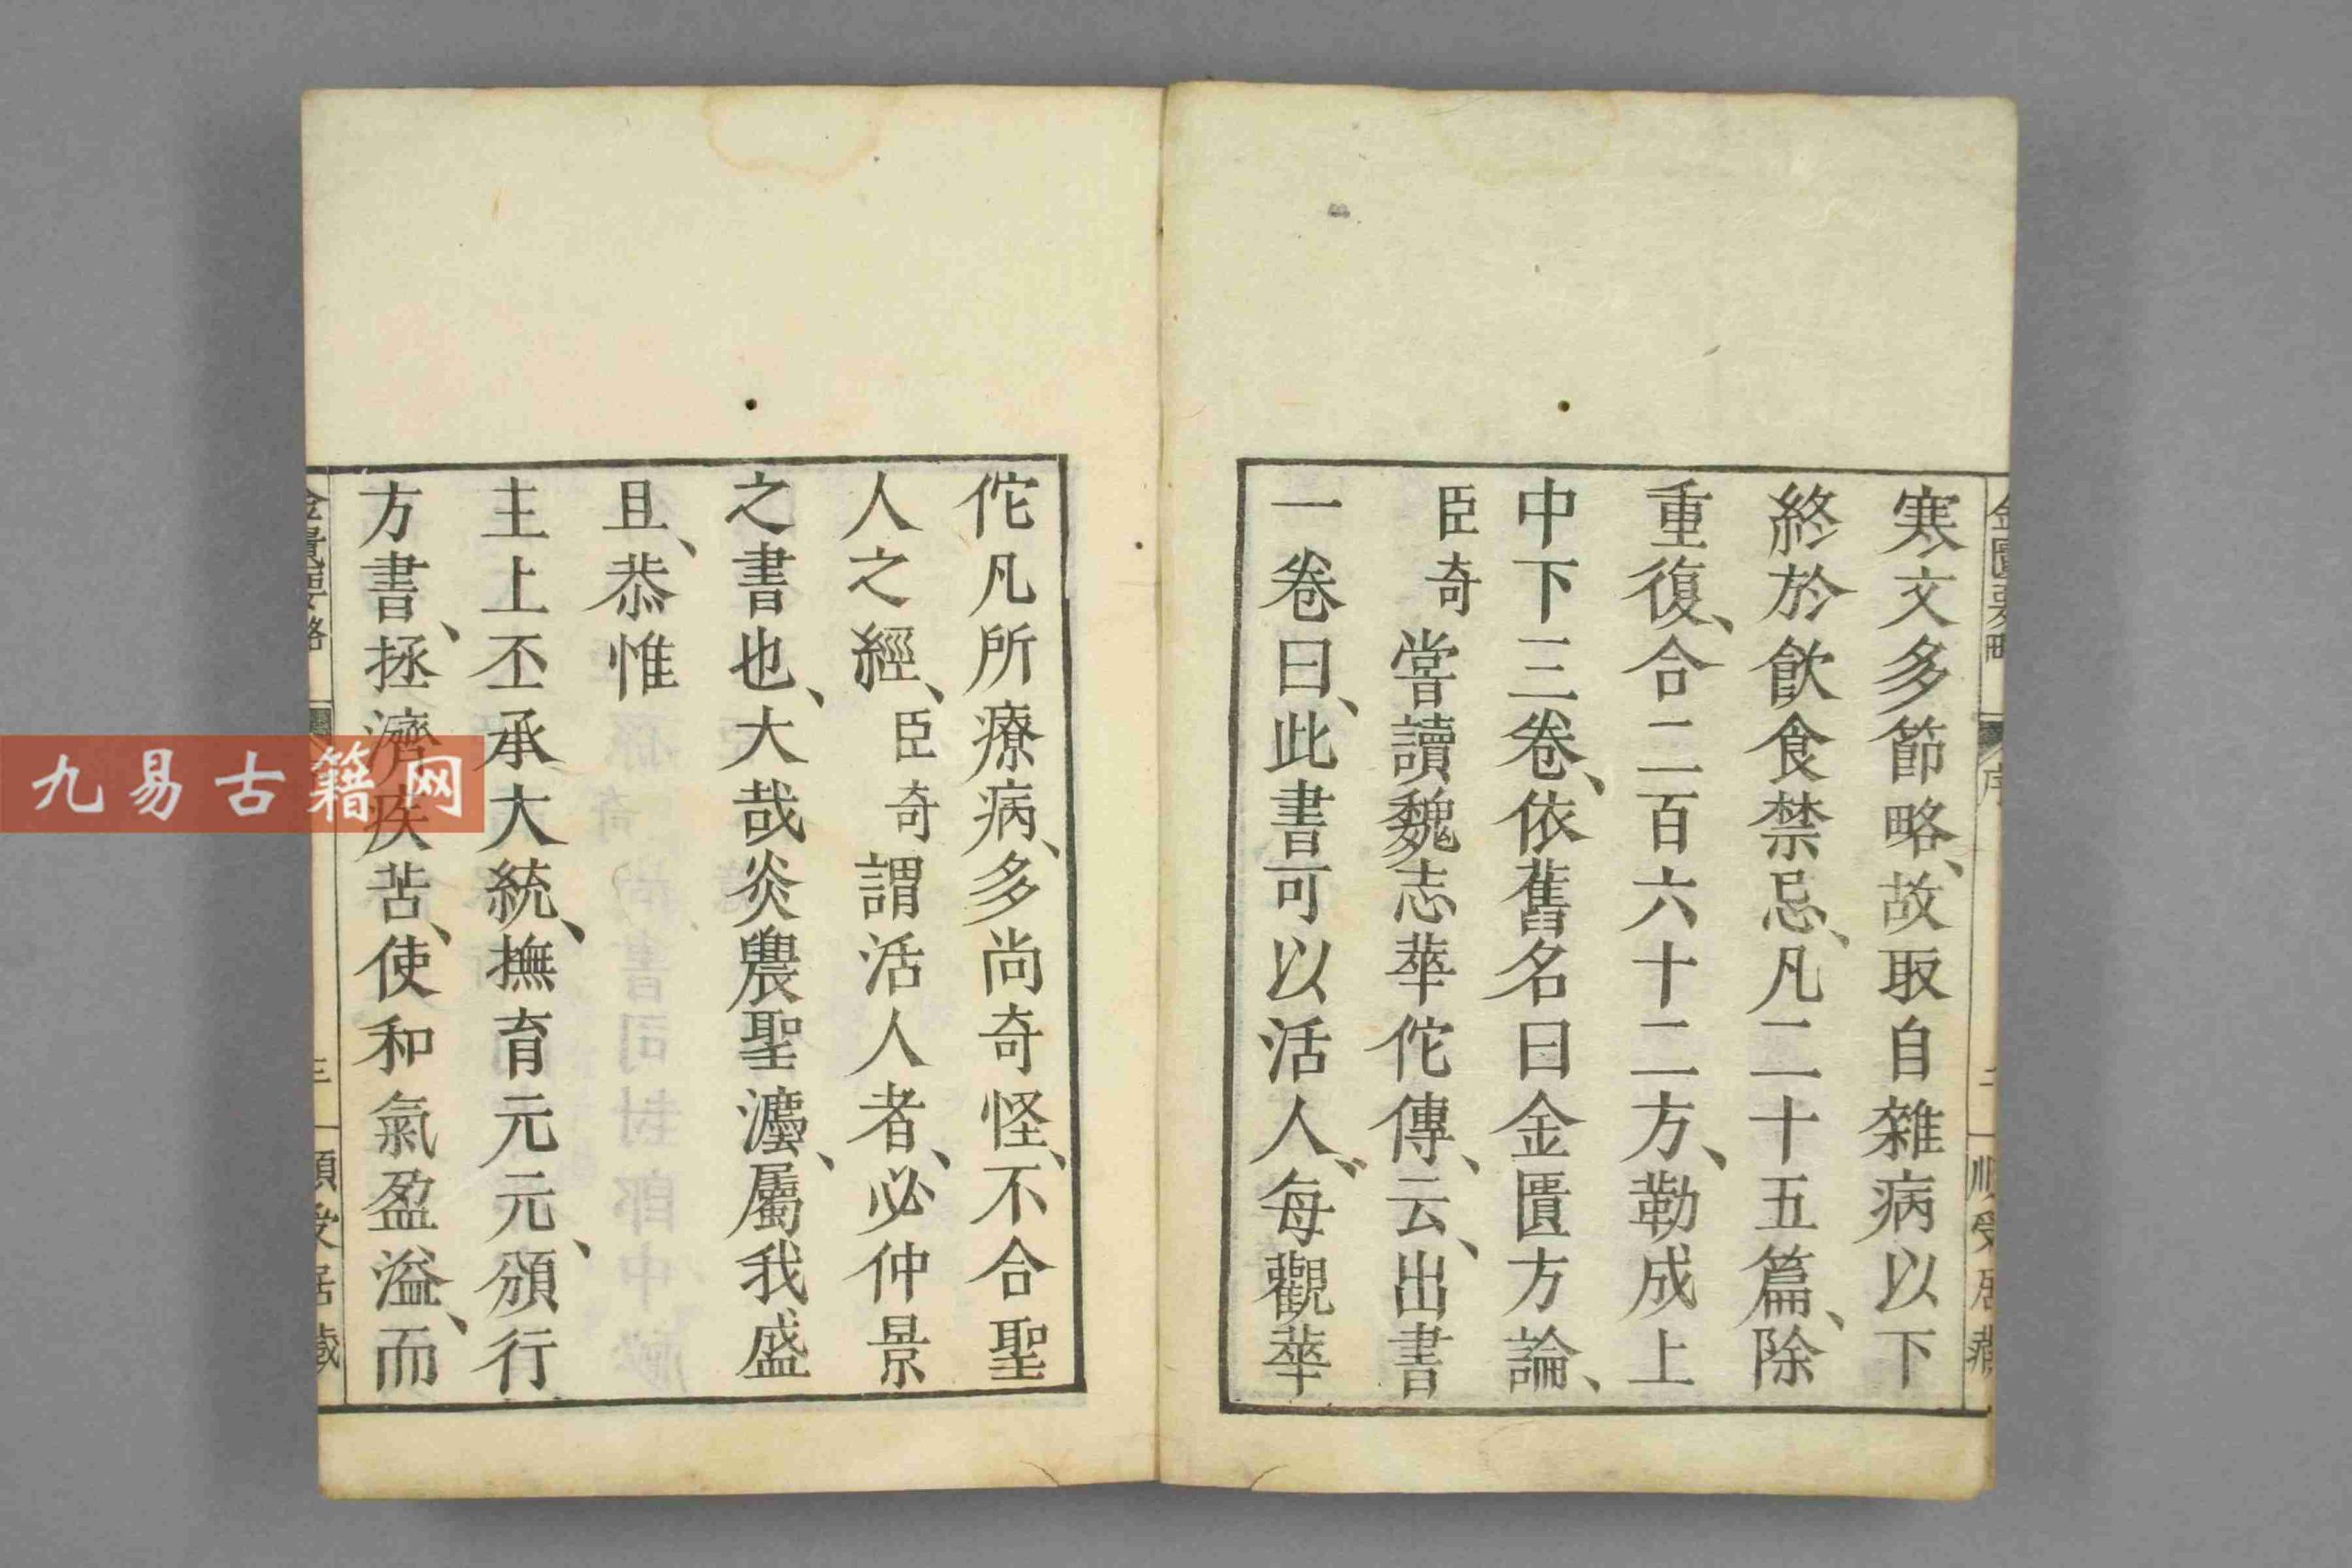 寒文多節略、故取自雜病以下
終於飮食禁忌、凡二十五篇、除
重復、合二百六十二方、勒成上
中下三卷、依舊名曰金匱方論、
臣奇嘗讀魏志華佗傳、云、出書
一卷曰、此書可以活人、每觀華
佗凡所療病、多尚奇怪、不合聖
人之經、臣奇謂活人者、必仲景
之書也、大哉炎農聖灋、屬我盛
旦、恭惟
主上丕承大統、撫育元元、頒行
方書、拯濟疾苦、使和氣盈溢、而
金匱要略 序 二 順受居藏
金匱要略 三 順受居藏
九易古籍网